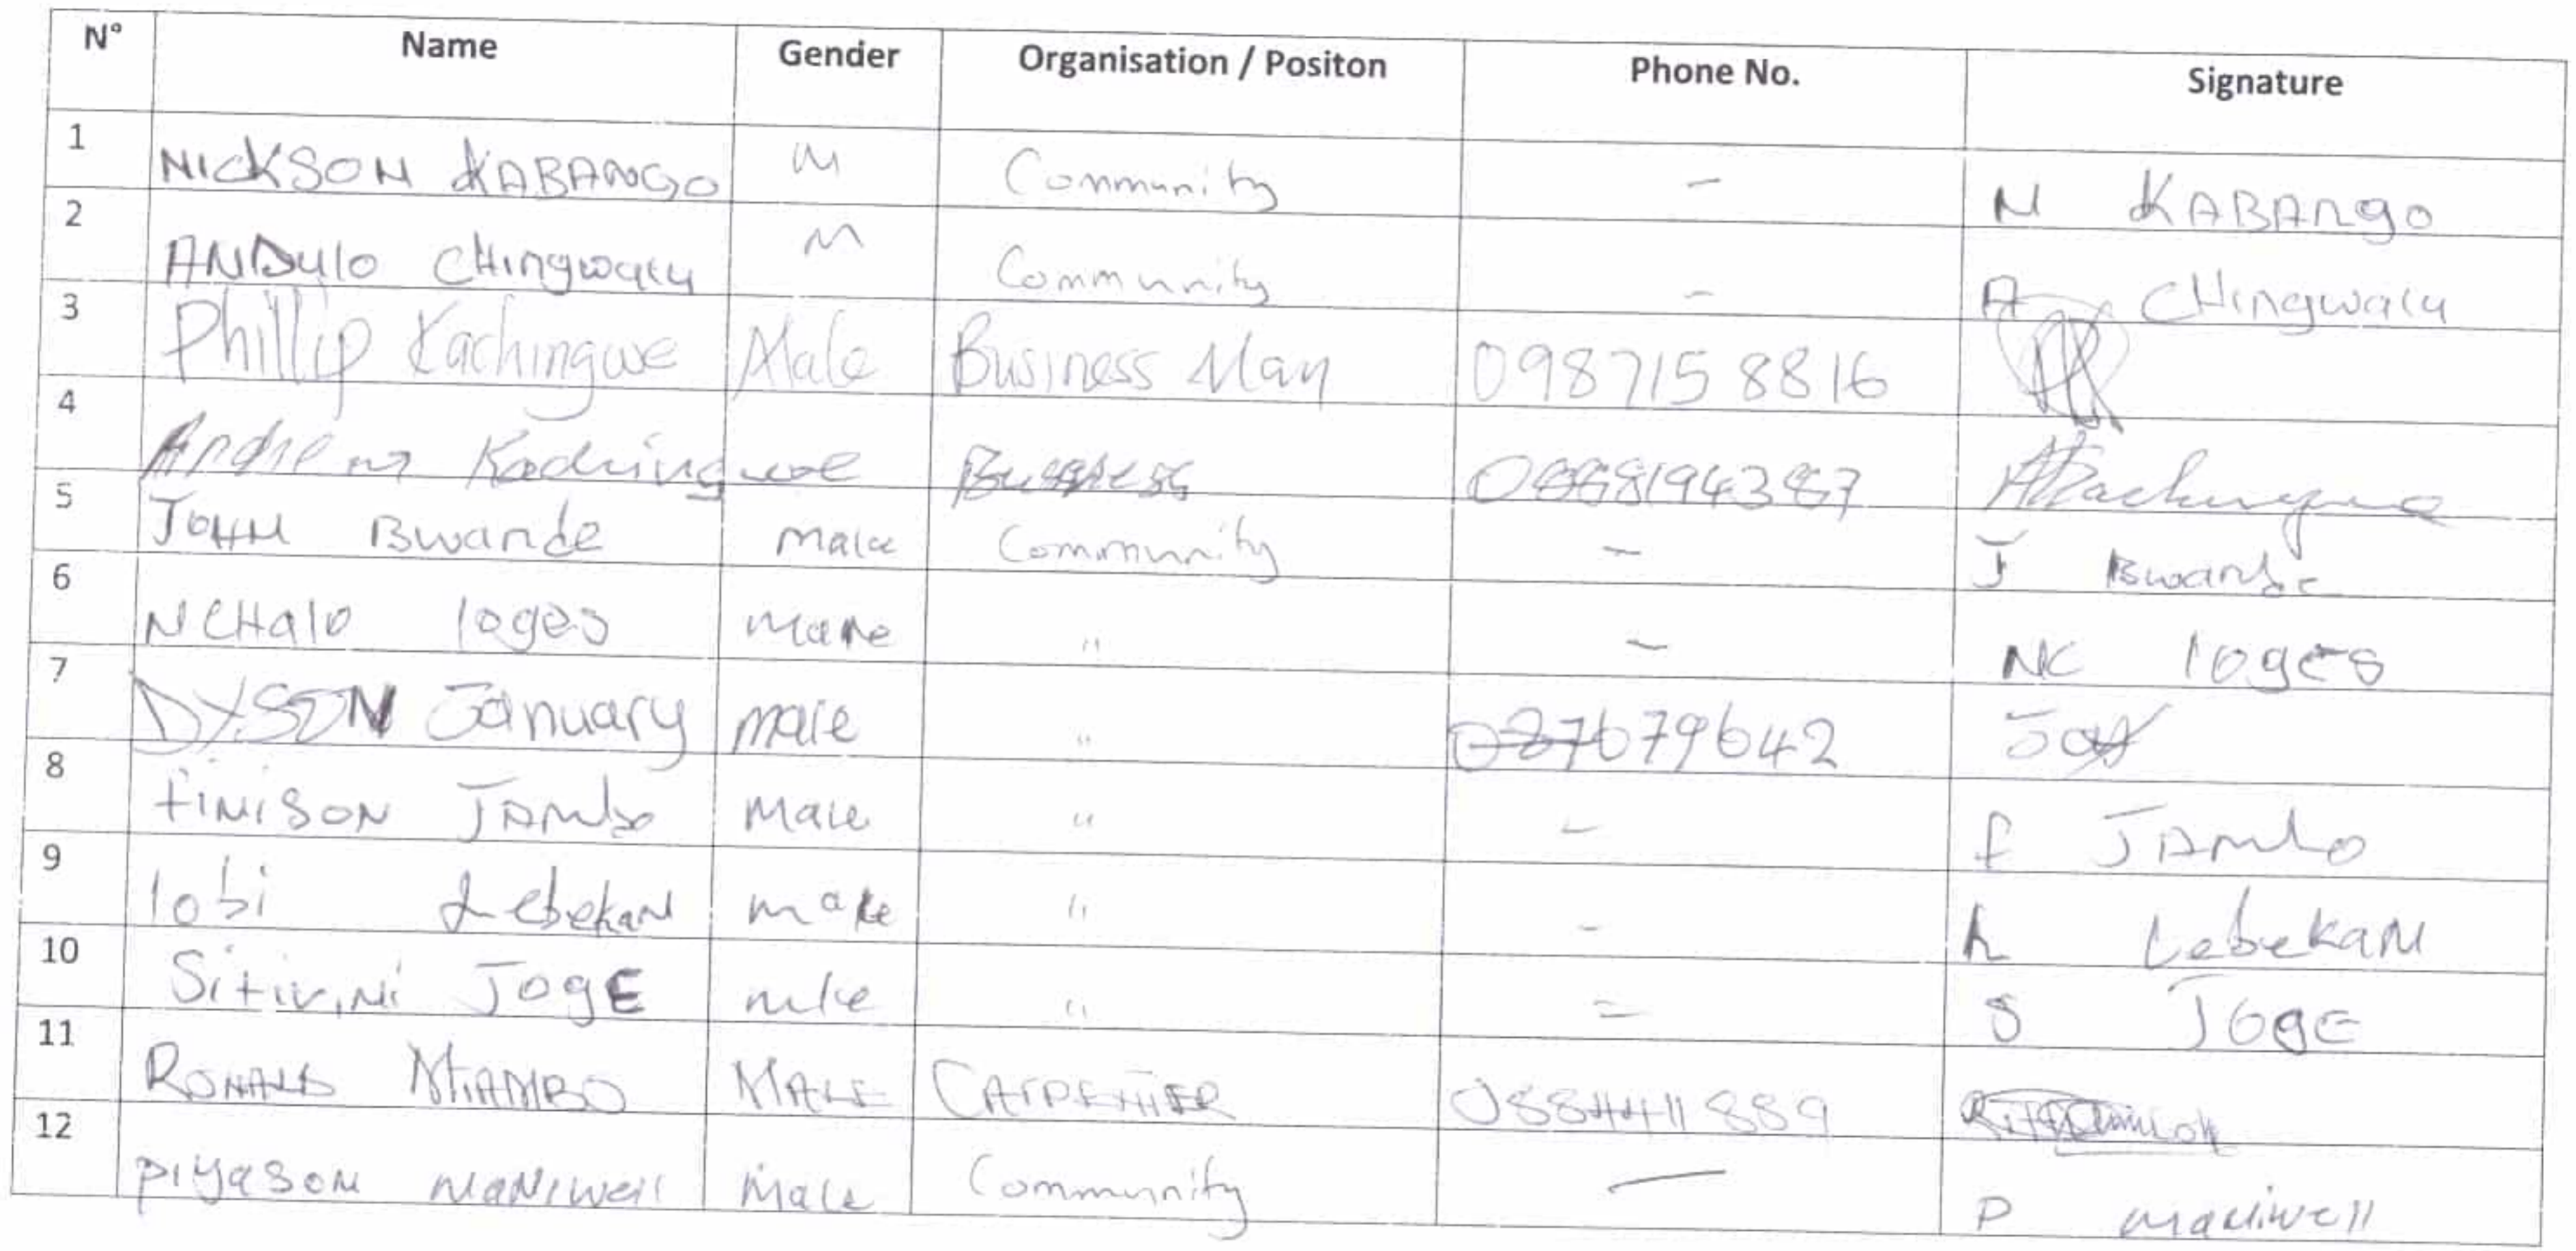 N° Name Gender Organisation / Positon Phone No. Signature
1 NICKSON KABANGO M Community - N KABANgo
2 ANDULO CHingwalu M Community - A CHingwalu
3 Phillip Kachingwe Male Business Man 0987158816
4 Andrew Kachingwe Business 0888194387
5 JOHN Bwande male Community - J Bwande
6 NCHalo loges male " - NC loges
7 DYSON January male " 087679642 Jan
8 fiNiSON JAmbo Male " - f JAmbo
9 lobi Lebekan male " - L LebekaN
10 Sitivini JogE mle " = S JogE
11 RONALD NTIAMBO MALE CARPENTER 0884411889
12 piyason maNiwell Male Community - P maniwell